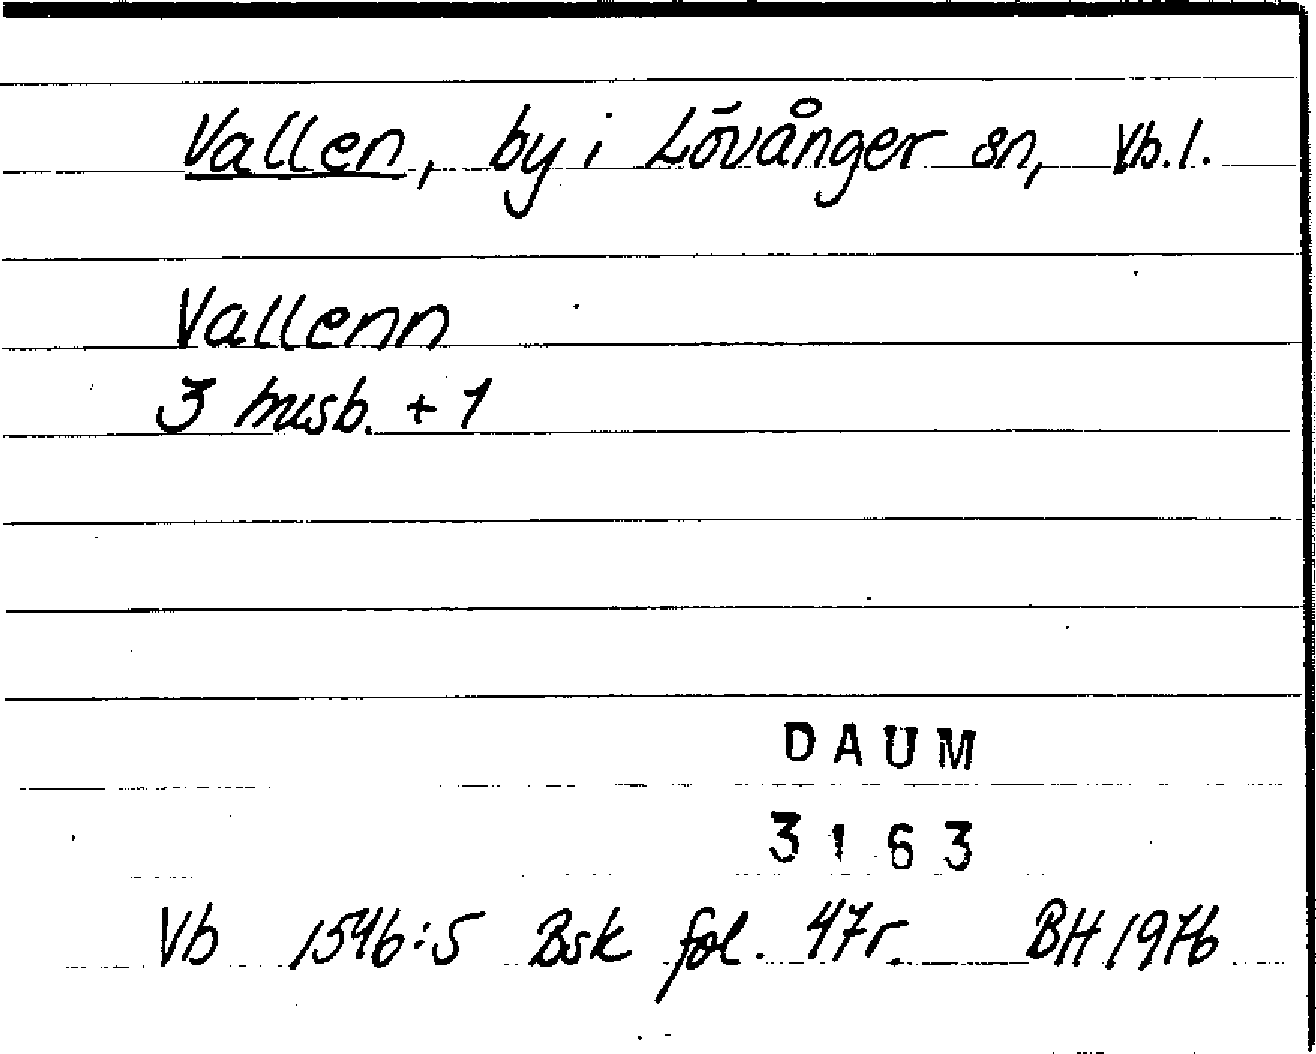 Vallen, by i Lövånger sn, Vb.l.
Vallenn
3 husb. + 1
DAUM
3163
Vb 1546:5 Bsk fol. 47r. BH 1976